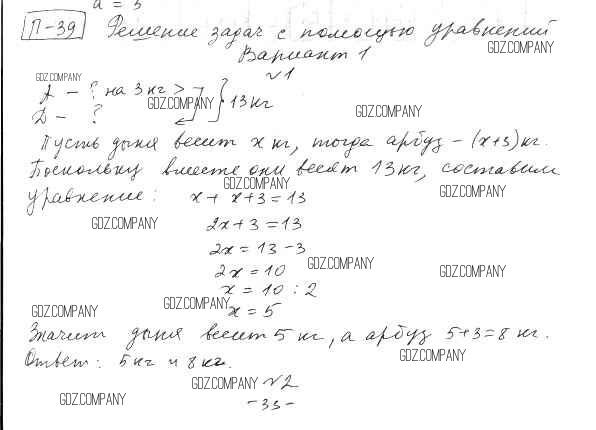 a = 5
П-39 Решение задач с помощью уравнений
GDZ.COMPANY
Вариант 1
№1
GDZ.COMPANY
А - ? на 3 кг >
GDZ.COMPANY
13 кг
Д - ?
GDZ.COMPANY
Пусть дыня весит x кг, тогда арбуз - (x+3) кг.
Поскольку вместе они весят 13 кг, составим
GDZ.COMPANY
уравнение: x + x+3 = 13
GDZ.COMPANY
GDZ.COMPANY
2x+3 = 13
2x = 13-3
GDZ.COMPANY
2x = 10
GDZ.COMPANY
x = 10 : 2
GDZ.COMPANY
x = 5
GDZ.COMPANY
Значит дыня весит 5 кг, а арбуз 5+3=8 кг.
Ответ: 5 кг и 8 кг.
GDZ.COMPANY
GDZ.COMPANY
№2
GDZ.COMPANY
-33-